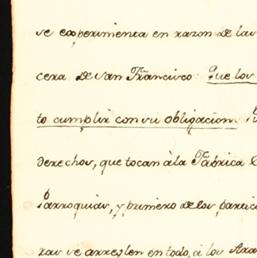 se experimenta en razon de las
cera de San Fran.co Que los
to cumplir con su obligacion.
derechos, que tocan à la Fabrica
Parroquias, y primero de los partic
ras se arreglen en todo, à los Ara